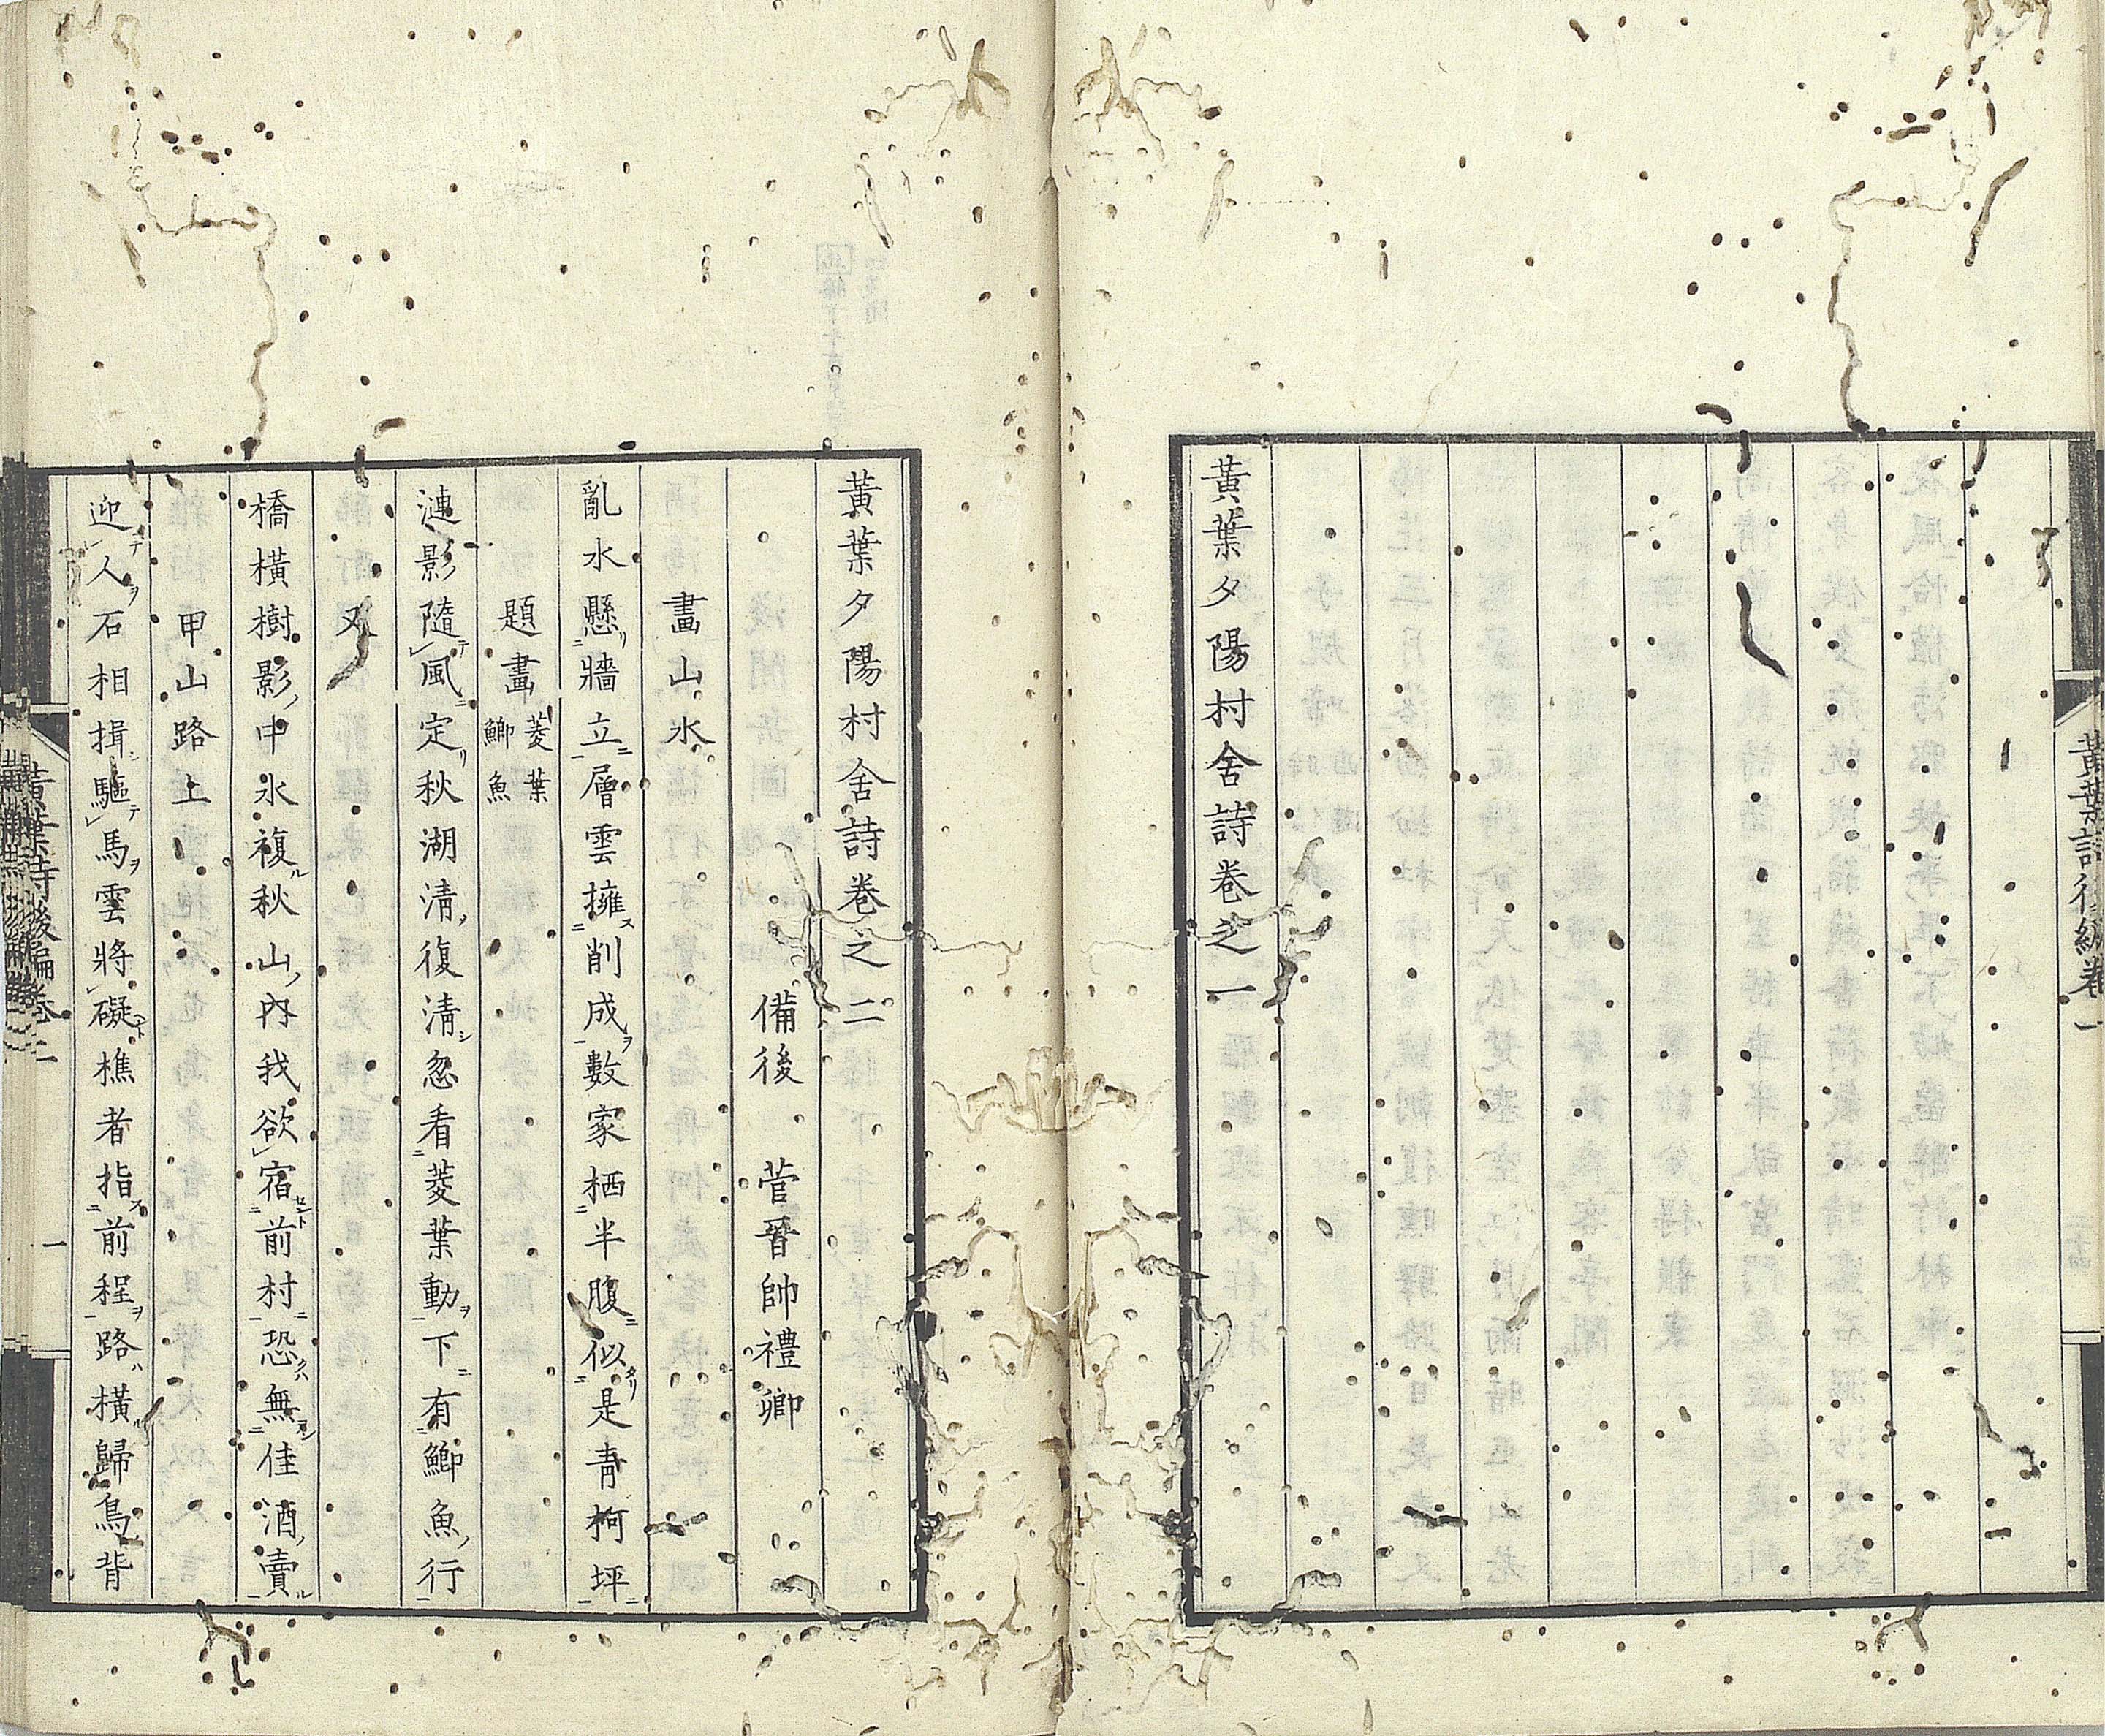 黃葉詩後編卷一
黃葉夕陽村舍詩卷之一
黃葉夕陽村舍詩卷之二
備後 菅晉帥禮卿
畫山水
亂水懸牆立層雲擁削成數家栖半腹似是靑柯坪
題畫 菱葉鯽魚
漣影隨風定秋湖淸復淸忽看菱葉動下有鯽魚行
又
橋橫樹影中水複秋山內我欲宿前村恐無佳酒賣
甲山路上
迎人石相揖驅馬雲將礙樵者指前程路橫歸鳥背
黃葉詩後編卷二
一